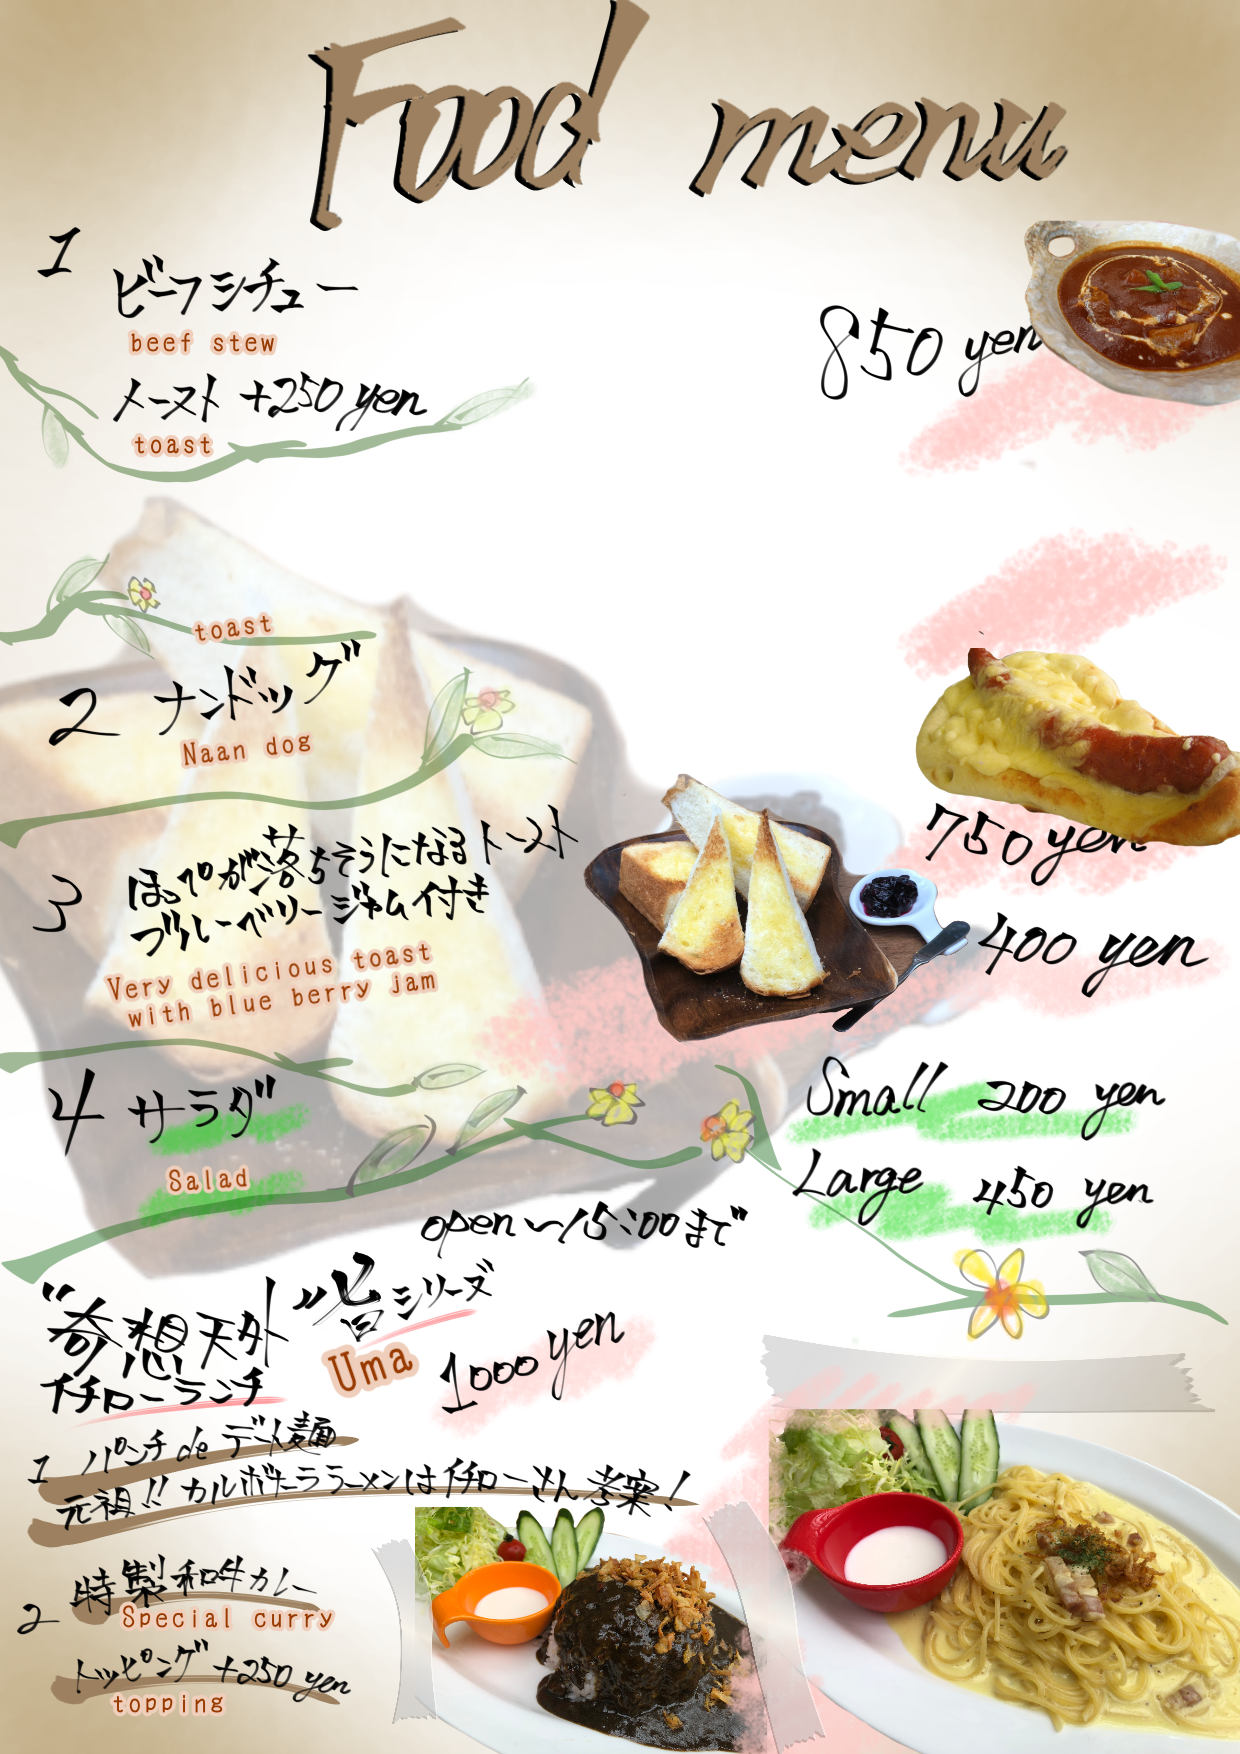 Food menu
1 ビーフシチュー
beef stew
850 yen
トースト +250 yen
toast
toast
2 ナンドッグ
Naan dog
750 yen
3 ほっぺが落ちそうになるトースト
ブルーベリージャム付き
Very delicious toast
with blue berry jam
400 yen
4 サラダ
Salad
Small 200 yen
Large 450 yen
open 〜15:00まで
"奇想天外"旨シリーズ
Uma
イチローランチ
1000 yen
1 パンチ de デート麺
元祖!! カルボナーララーメンはイチローさん考案!
2 特製和牛カレー
Special curry
トッピング +250 yen
topping